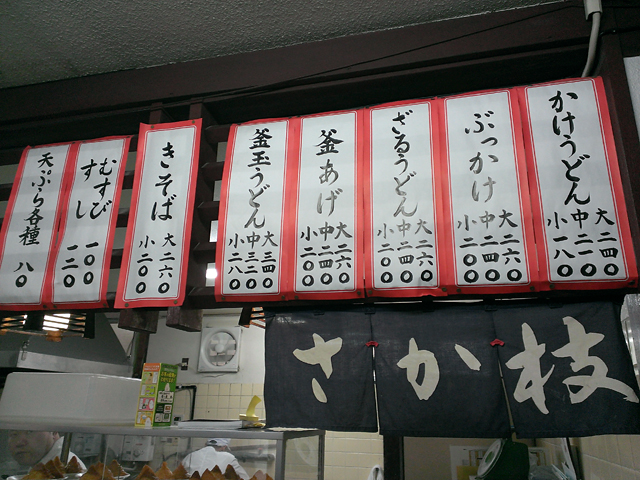 かけうどん
大二四〇
中二一〇
小一八〇
ぶっかけ
大二六〇
中二四〇
小二〇〇
ざるうどん
大二六〇
中二四〇
小二〇〇
釜あげ
大二六〇
中二四〇
小二〇〇
釜玉うどん
大三四〇
中三二〇
小二八〇
きそば
大二六〇
小二〇〇
むすび 一〇〇
すし 一二〇
天ぷら各種 八〇
さか枝